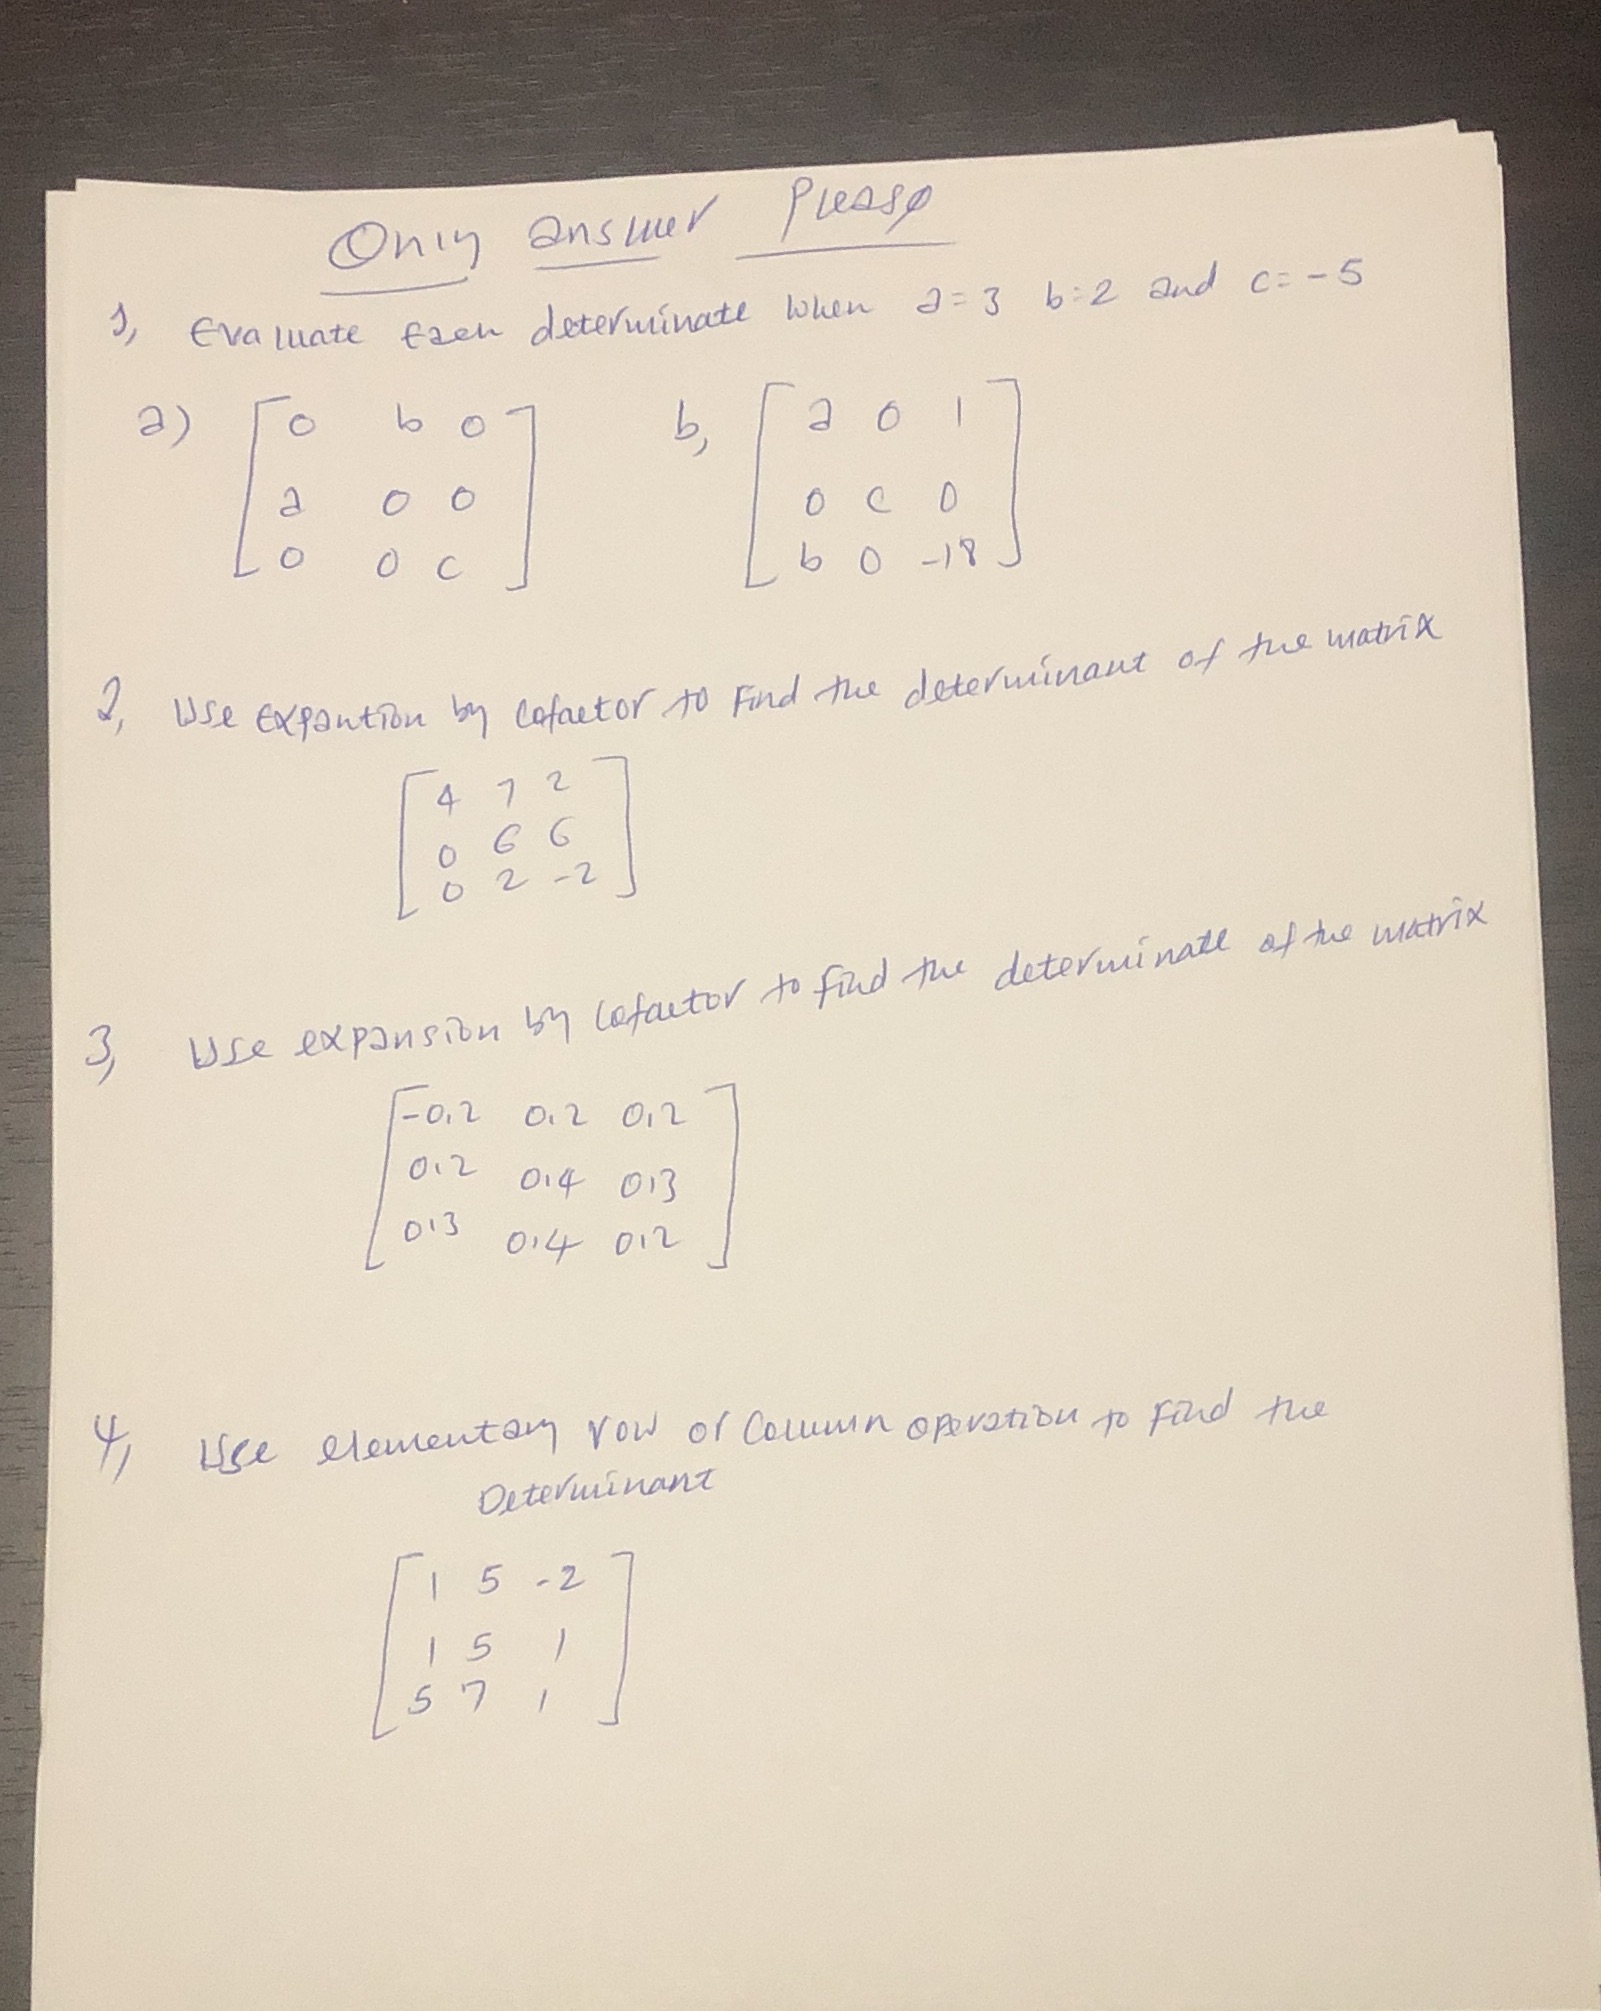 Only answer Please
1, Evaluate Each determinate when a=3 b=2 and c=-5
a) [ 0 b 0 ] b, [ a 0 1 ]
a 0 0 0 c 0
0 0 c b 0 -18
2, Use Expantion by Cofactor to Find the determinant of the matrix
4 7 2
0 6 6
0 2 -2
3, Use expansion by Cofactor to find the determinate of the matrix
-0.2 0.2 0.2
0.2 0.4 0.3
0.3 0.4 0.2
4, Use elementary row or Column operation to Find the
Determinant
1 5 -2
1 5 1
5 7 1